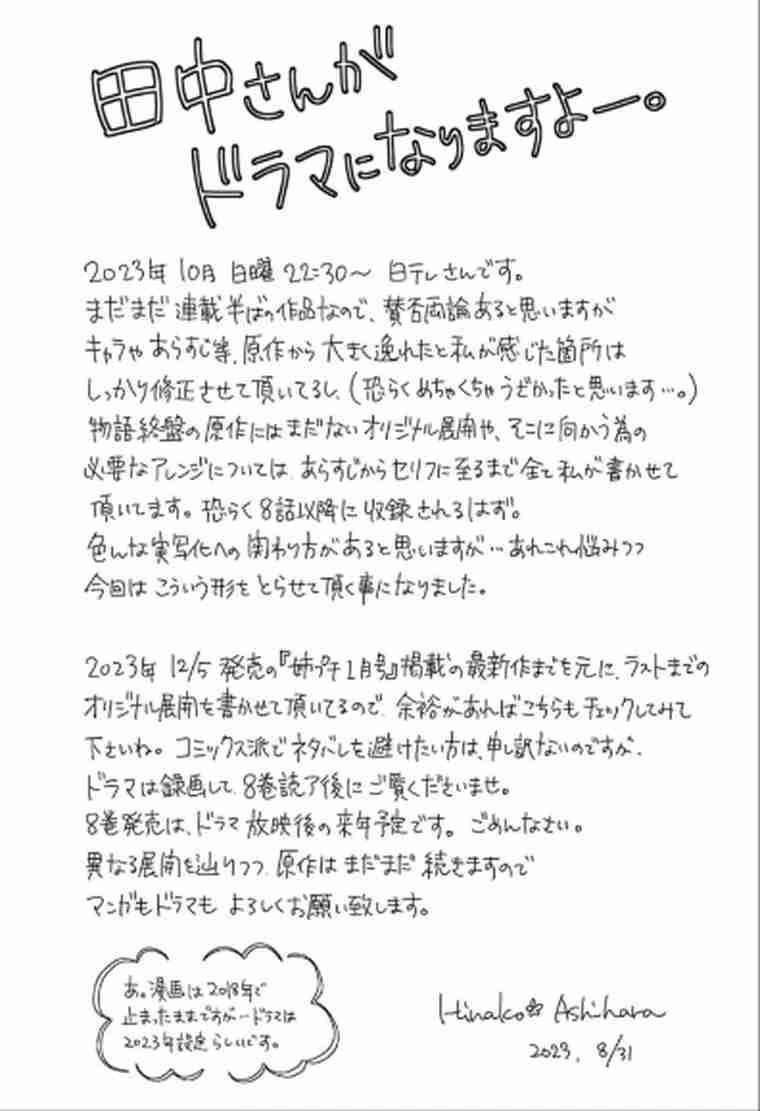 田中さんが
ドラマになりますよー。
2023年 10月 日曜 22:30〜 日テレさんです。
まだまだ 連載半ばの作品なので、賛否両論あると思いますが
キャラや あらすじ等、原作から 大きく逸れたと私が感じた箇所は
しっかり修正させて頂いてるし、(恐らくめちゃくちゃうざかったと思います…。)
物語終盤の原作にはまだないオリジナル展開や、そこに向かう為の
必要なアレンジについては、あらすじからセリフに至るまで全て私が書かせて
頂いてます。恐らく8話以降に収録されるはず。
色んな実写化への関わり方があると思いますが…あれこれ悩みつつ
今回は こういう形を とらせて頂く事になりました。
2023年 12/5 発売の『姉プチ1月号』掲載の最新作までを元に、ラストまでの
オリジナル展開を書かせて頂いてるので、余裕があればこちらもチェックしてみて
下さいね。コミックス派でネタバレを避けたい方は、申し訳ないのですが、
ドラマは録画して、8巻読了後に ご覧くださいませ。
8巻発売は、ドラマ放映後の来年予定です。ごめんなさい。
異なる展開を辿りつつ、原作は まだまだ 続きますので
マンガもドラマも よろしくお願い致します。
あ。漫画は2018年で
止まったままですが…ドラマは
2023年設定らしいです。
Hinako☆Ashihara
2023. 8/31